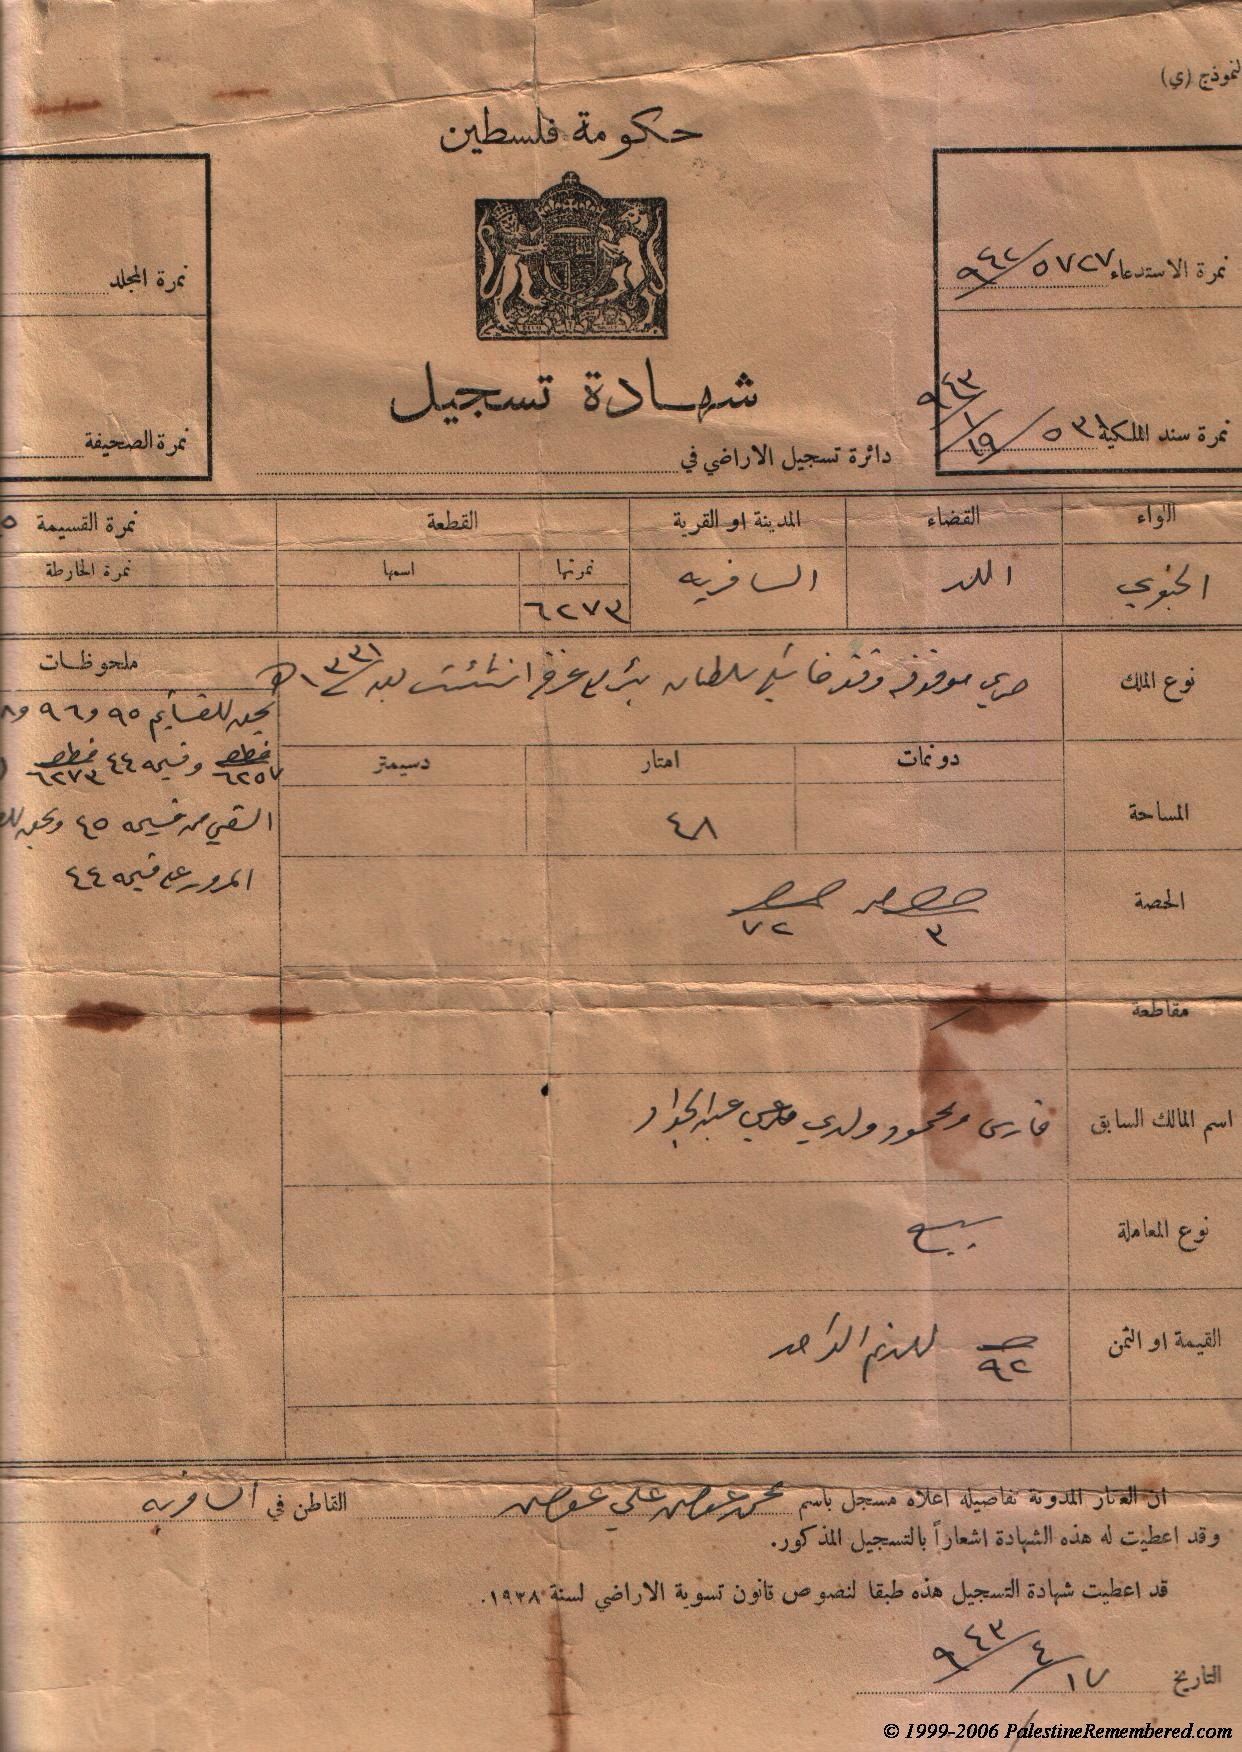 نموذج (ي)
حكومة فلسطين
نمرة الاستدعاء ٥٧٢٧/٩٤٢
نمرة المجلد
شهادة تسجيل
نمرة سند الملكية
نمرة الصحيفة
دائرة تسجيل الاراضي في
اللواء القضاء المدينة او القرية القطعة نمرة القسيمة
نمرتها اسمها نمرة الخارطة
الجنوبي اللد السافريه ٦٢٧٣
نوع الملك
ملحوظات
يحق للقسايم ٩٥ و ٩٦ و
٦٢٥٧ وقسيمه ٤٤ ٦٢٧٣
السقي من قسيمه ٤٥ ويحق
المرور على قسيمه ٤٤
دونمات امتار دسيمتر
المساحة ٤٨
الحصة ٣ ٧٢
مقاطعة
اسم المالك السابق فارس ومحمود ولدي عبد الجواد
نوع المعاملة بيع
القيمة او الثمن ٩٢
ان العقار المدونة تفاصيله اعلاه مسجل باسم محمد عوض علي عوض القاطن في السافريه
وقد اعطيت له هذه الشهادة اشعاراً بالتسجيل المذكور.
قد اعطيت شهادة التسجيل هذه طبقا لنصوص قانون تسوية الاراضي لسنة ١٩٣٨.
التاريخ ١٧/٤/٩٤٣
© 1999-2006 PalestineRemembered.com